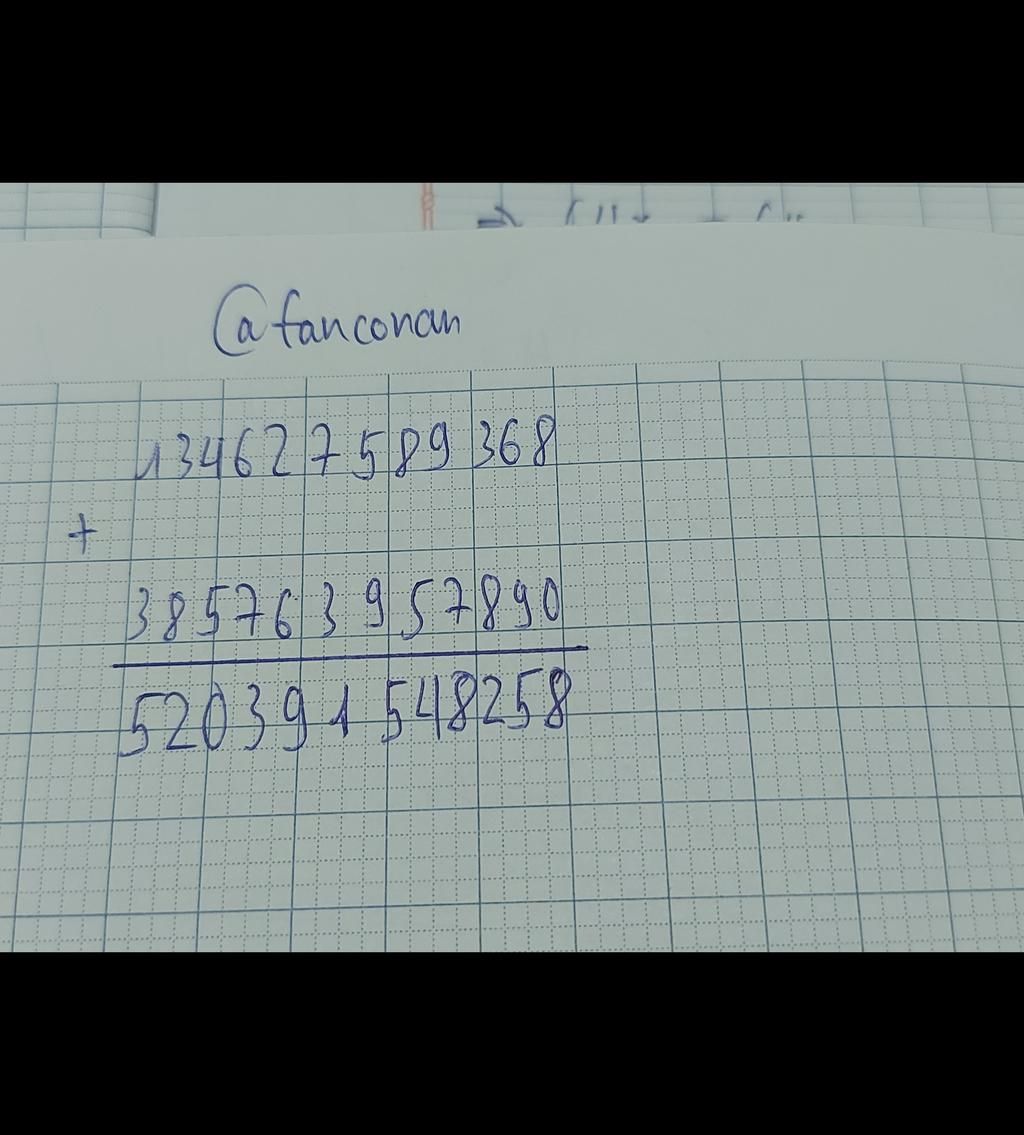 @fanconan
134627589368
+
385763957890
520391548258